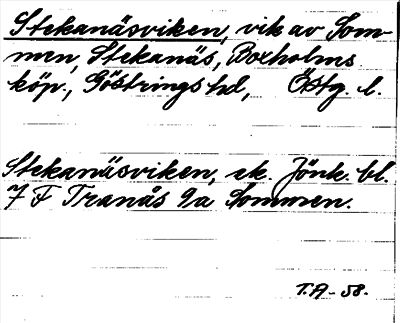 Stekanäsviken, vik av Som-
men, Stekanäs, Boxholms
köp., Göstrings hd, Östg. l.
Stekanäsviken, ek. Jönk. bl.
7 F Tranås 9a Sommen.
T.A-58.